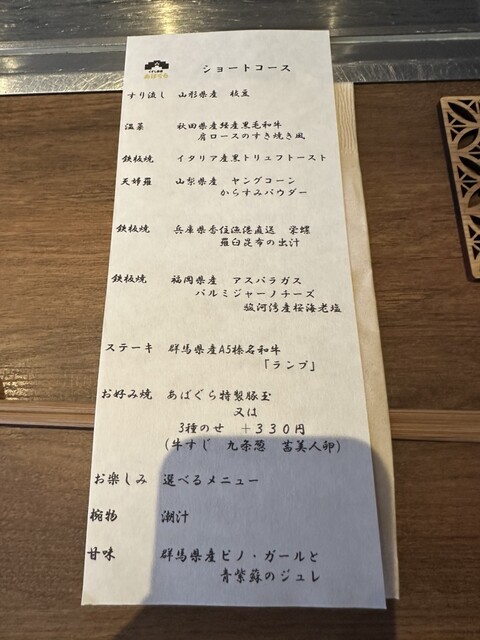 あばぐら
ショートコース
すり流し 山形県産 枝豆
温菜 秋田県産経産黒毛和牛
肩ロースのすき焼き風
鉄板焼 イタリア産黒トリュフトースト
天婦羅 山梨県産 ヤングコーン
からすみパウダー
鉄板焼 兵庫県香住漁港直送 栄螺
羅臼昆布の出汁
鉄板焼 福岡県産 アスパラガス
パルミジャーノチーズ
駿河湾産桜海老塩
ステーキ 群馬県産A5榛名和牛
「ランプ」
お好み焼 あばぐら特製豚玉
又は
3種のせ +330円
(牛すじ 九条葱 茜美人卵)
お楽しみ 選べるメニュー
椀物 潮汁
甘味 群馬県産ピノ・ガールと
青紫蘇のジュレ